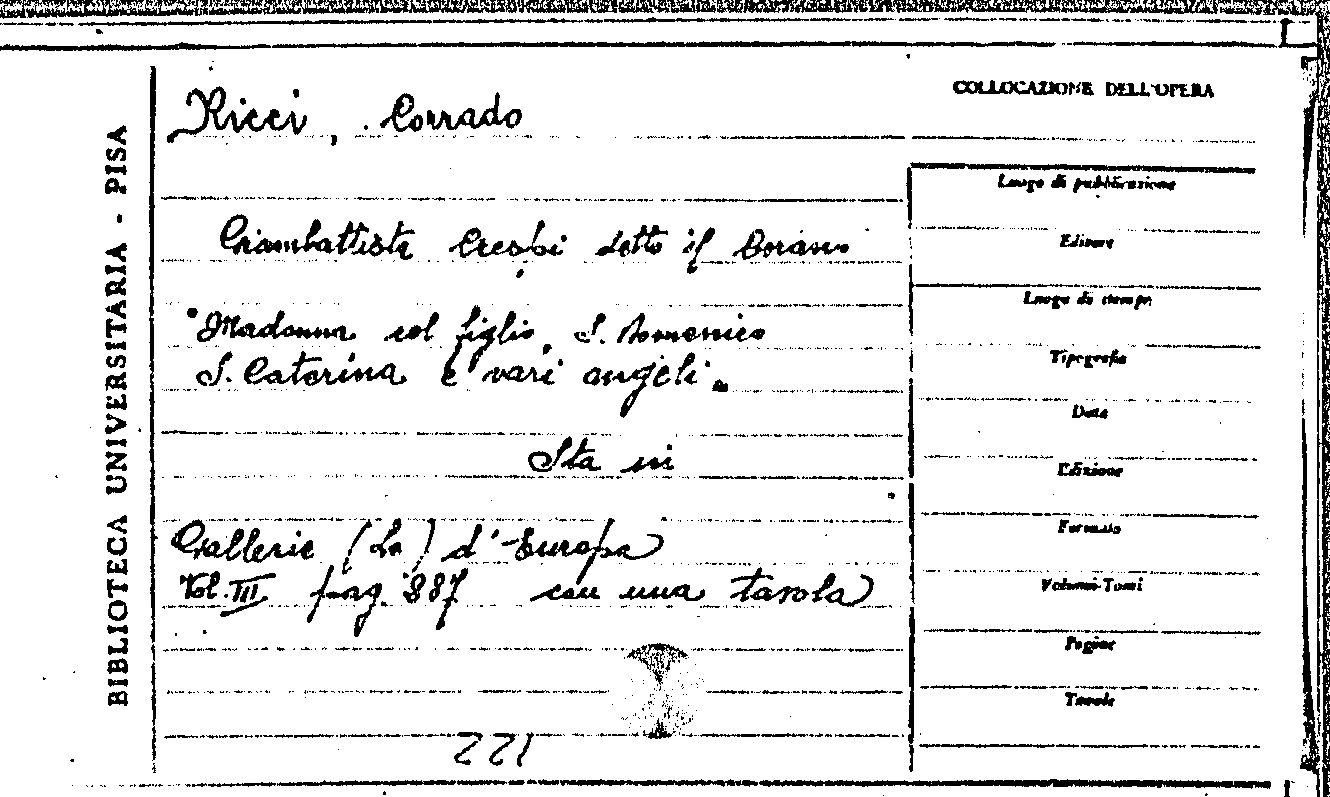 COLLOCAZIONE DELL'OPERA
Ricci, Corrado
Giambattista Crespi detto il Cerano
"Madonna col figlio, S. Domenico
S. Caterina e vari angeli"
Sta in
Gallerie (Le) d'Europa
Vol. III pag. 887 con una tavola
221
BIBLIOTECA UNIVERSITARIA - PISA
Luogo di pubblicazione
Editore
Luogo di stampa
Tipografia
Data
Edizione
Formato
Volumi-Tomi
Pagine
Tavole